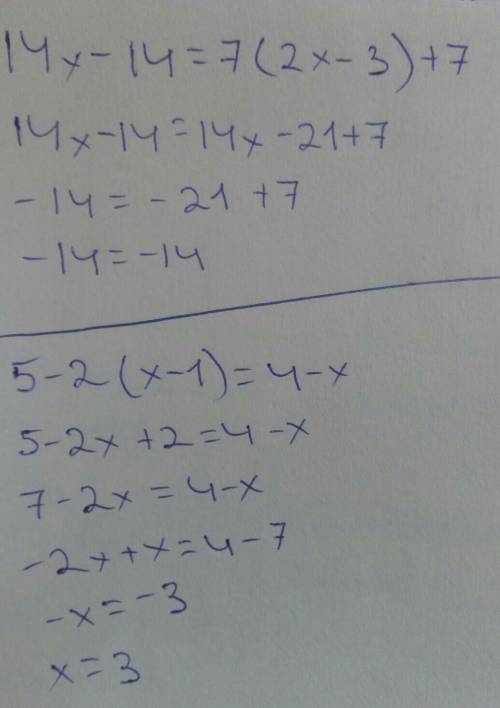 14x-14=7(2x-3)+7
14x-14=14x-21+7
-14=-21+7
-14=-14
5-2(x-1)=4-x
5-2x+2=4-x
7-2x=4-x
-2x+x=4-7
-x=-3
x=3